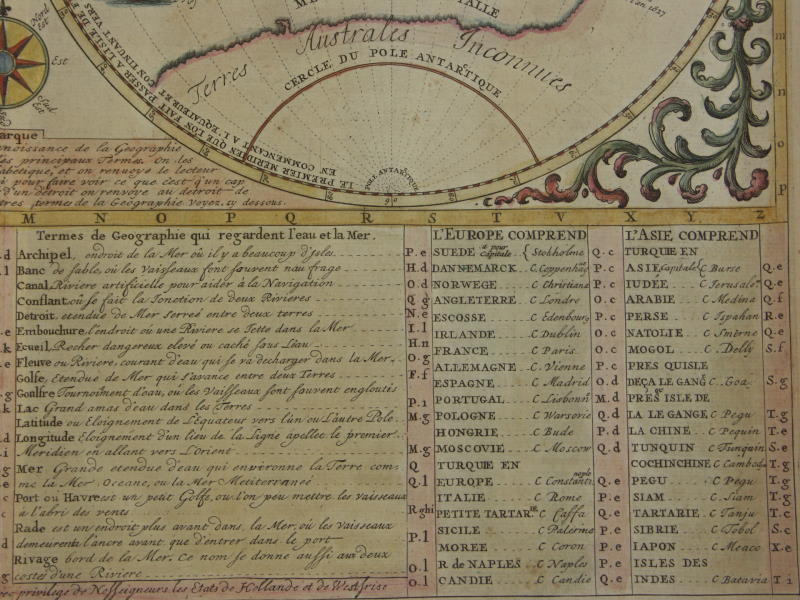 Nord Est
Est
Sud Est
Terres Australes Inconnues
CERCLE DU POLE ANTARCTIQUE
POLE ANTARCTIQUE
LE PREMIER MERIDIEN QUE L'ON FAIT PASSER A L'ISLE DE
EN COMMENCANT A L'EQUATEUR ET CONTINUANT VERS
arque
nnoissance de la Geographie
les principaux Termes. On les
abetique, et on renvoye le lecteur
i pour faire voir ce que c'est qu'un cap
d'un détroit on renvoye au détroit de
tres termes de la Geographie voyez cy dessous.
m
n
o
p
M N O P Q R S T V X Y Z
Termes de Geographie qui regardent l'eau et la Mer.
Archipel, endroit de la Mer où il y a beaucoup d'Isles
Banc de sable, où les Vaisseaux font souvent naufrage
Canal Riviere artificielle pour aider à la Navigation
Conflant où se fait la Jonction de deux Rivieres
Detroit etendue de Mer serreé entre deux terres
Embouchure l'endroit où une Riviere se Jette dans la Mer
Ecueil Rocher dangereux elevé ou caché sous l'eau
Fleuve ou Riviere, courant d'eau qui se va decharger dans la Mer
Golfe, Etendue de Mer qui s'avance entre deux Terres
Goulfre Tournoiment d'eau, où les Vaisseaux sont souvent engloutis
Lac Grand amas d'eau dans les Terres
Latitude ou Eloignement de L'équateur vers l'un ou L'autre Pole
Longitude Eloignement d'un lieu de la Ligne apellee le premier
Meridien en allant vers L'orient
Mer Grande etendue d'eau qui environne la Terre com=
me la Mer Oceane, ou la Mer Mediterraneé
Port ou Havre est un petit Golfe, ou l'on peu mettre les vaisseaux
a l'abri des vents
Rade est un endroit plus avant dans la Mer, où les vaisseaux
demeurent à l'ancre avant que d'entrer dans le port
Rivage bord de la Mer. Ce nom se donne aussi aux deux
costes d'une Riviere
avec privilege de Nosseigneurs les Etats de Hollande et de Westfrise
P.e
H.d
O.d
Q.g
N.e
I.l
H.n
O.g
F.f
P.i
M.g
M.g
Q
Q.l
R ghi
P.l
O.l
L'EUROPE COMPREND
SUEDE a pour Capitale Stokholme Q.c
DANNEMARCK C Coppenhag P.c
NORWEGE C Christiana P.c
ANGLETERRE C Londre O.c
ESCOSSE C Edenbourg P.c
IRLANDE C Dublin O.c
FRANCE C Paris O.c
ALLEMAGNE C Vienne P.c
ESPAGNE C Madrid O.d
PORTUGAL C Lisbonne M.d
POLOGNE C Warsovie Q.d
HONGRIE C Bude P.d
MOSCOVIE C Moscow Q.d
TURQUIE EN
EUROPE C Constantinople Q.e
ITALIE C Rome P.e
PETITE TARTARie C Caffa Q.e
SICILE C Palerme P.e
MOREE C Coron P.e
R de NAPLES C Naples P.e
CANDIE C Candie Q.e
L'ASIE COMPREND
TURQUIE EN
ASIE Capitale C Burse Q.e
IUDEE C Jerusale Q.e
ARABIE C Medina Q.f
PERSE C Ispahan R.e
NATOLIE C Smirne Q.e
MOGOL C Delly S.f
PRES QUISLE
DEÇA LE GANGE C Goa S.g
PRES ISLE DE
LA LE GANGE C Pegu T.g
LA CHINE C Pequin T.e
TUNQUIN C Tunquin S.e
COCHINCHINE C Camboge T.g
PEGU C Pegu T.g
SIAM C Siam T.g
TARTARIE C Tanju T.c
SIBRIE C Tobol S.c
IAPON C Meaco X.e
ISLES DES
INDES C Batavia T i